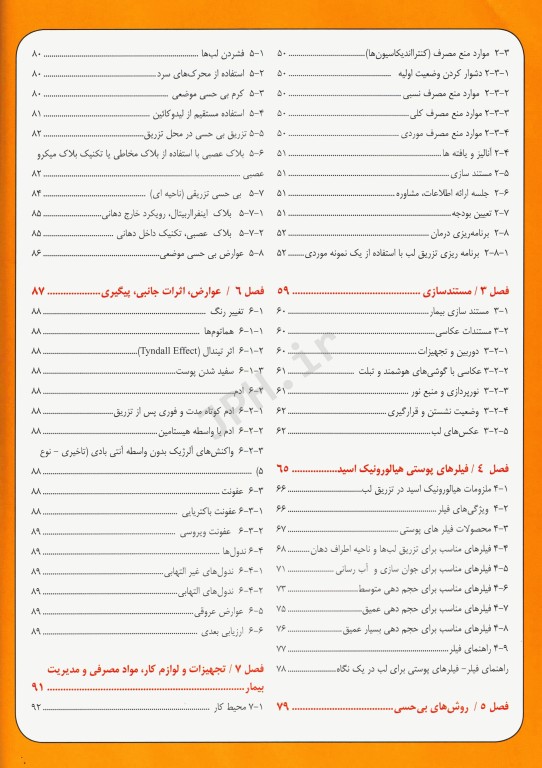 ۲-۳ موارد منع مصرف (کنترااندیکاسیون‌ها) ۵۰
۲-۳-۱ دشوار کردن وضعیت اولیه ۵۰
۲-۳-۲ موارد منع مصرف نسبی ۵۰
۲-۳-۳ موارد منع مصرف کلی ۵۰
۲-۳-۴ موارد منع مصرف موردی ۵۰
۲-۴ آنالیز و یافته ها ۵۱
۲-۵ مستند سازی ۵۱
۲-۶ جلسه ارائه اطلاعات، مشاوره ۵۱
۲-۷ تعیین بودجه ۵۱
۲-۸ برنامه‌ریزی درمان ۵۲
۲-۸-۱ برنامه ریزی تزریق لب با استفاده از یک نمونه موردی ۵۲
فصل ۳ / مستندسازی ۵۹
۳-۱ مستند سازی بیمار ۶۰
۳-۲ مستندات عکاسی ۶۰
۳-۲-۱ دوربین و تجهیزات ۶۰
۳-۲-۲ عکاسی با گوشی‌های هوشمند و تبلت ۶۱
۳-۲-۳ نورپردازی و منبع نور ۶۱
۳-۲-۴ وضعیت نشستن و قرارگیری ۶۲
۳-۲-۵ عکس‌های لب ۶۲
فصل ۴ / فیلرهای پوستی هیالورونیک اسید ۶۵
۴-۱ ملزومات هیالورونیک اسید در تزریق لب ۶۶
۴-۲ ویژگی‌های فیلر ۶۶
۴-۳ محصولات فیلر های پوستی ۶۷
۴-۴ فیلرهای مناسب برای تزریق لب‌ها و ناحیه اطراف دهان ۶۸
۴-۵ فیلرهای مناسب برای جوان سازی و آب رسانی ۷۱
۴-۶ فیلرهای مناسب برای حجم دهی متوسط ۷۳
۴-۷ فیلرهای مناسب برای حجم دهی عمیق ۷۵
۴-۸ فیلرهای مناسب برای حجم دهی بسیار عمیق ۷۶
۴-۹ راهنمای فیلر ۷۷
راهنمای فیلر- فیلرهای پوستی برای لب در یک نگاه ۷۸
فصل ۵ / روش‌های بی‌حسی ۷۹
۵-۱ فشردن لب‌ها ۸۰
۵-۲ استفاده از محرک‌های سرد ۸۰
۵-۳ کرم بی حسی موضعی ۸۰
۵-۴ استفاده مستقیم از لیدوکائین ۸۱
۵-۵ تزریق بی حسی در محل تزریق ۸۲
۵-۶ بلاک عصبی با استفاده از بلاک مخاطی یا تکنیک بلاک میکرو
عصبی ۸۲
۵-۷ بی حسی تزریقی (ناحیه ای) ۸۴
۵-۷-۱ بلاک اینفرااربیتال، رویکرد خارج دهانی ۸۵
۵-۷-۲ بلاک عصبی، تکنیک داخل دهانی ۸۵
۵-۸ عوارض بی حسی موضعی ۸۶
فصل ۶ / عوارض، اثرات جانبی، پیگیری ۸۷
۶-۱ تغییر رنگ ۸۸
۶-۱-۱ هماتوم‌ها ۸۸
۶-۱-۲ اثر تیندال (Tyndall Effect) ۸۸
۶-۱-۳ سفید شدن پوست ۸۸
۶-۲ ادم ۸۸
۶-۲-۱ ادم کوتاه مدت و فوری پس از تزریق ۸۸
۶-۲-۲ ادم با واسطه هیستامین ۸۸
۶-۲-۳ واکنش‌های آلرژیک بدون واسطه آنتی بادی (تاخیری - نوع
۵) ۸۸
۶-۳ عفونت ۸۸
۶-۳-۱ عفونت باکتریایی ۸۸
۶-۳-۲ عفونت ویروسی ۸۹
۶-۴ ندول‌ها ۸۹
۶-۴-۱ ندول‌های غیر التهابی ۸۹
۶-۴-۲ ندول‌های التهابی ۸۹
۶-۵ عوارض عروقی ۸۹
۶-۶ ارزیابی بعدی ۸۹
فصل ۷ / تجهیزات و لوازم کار، مواد مصرفی و مدیریت
بیمار ۹۱
۷-۱ محیط کار ۹۲
JPH.ir